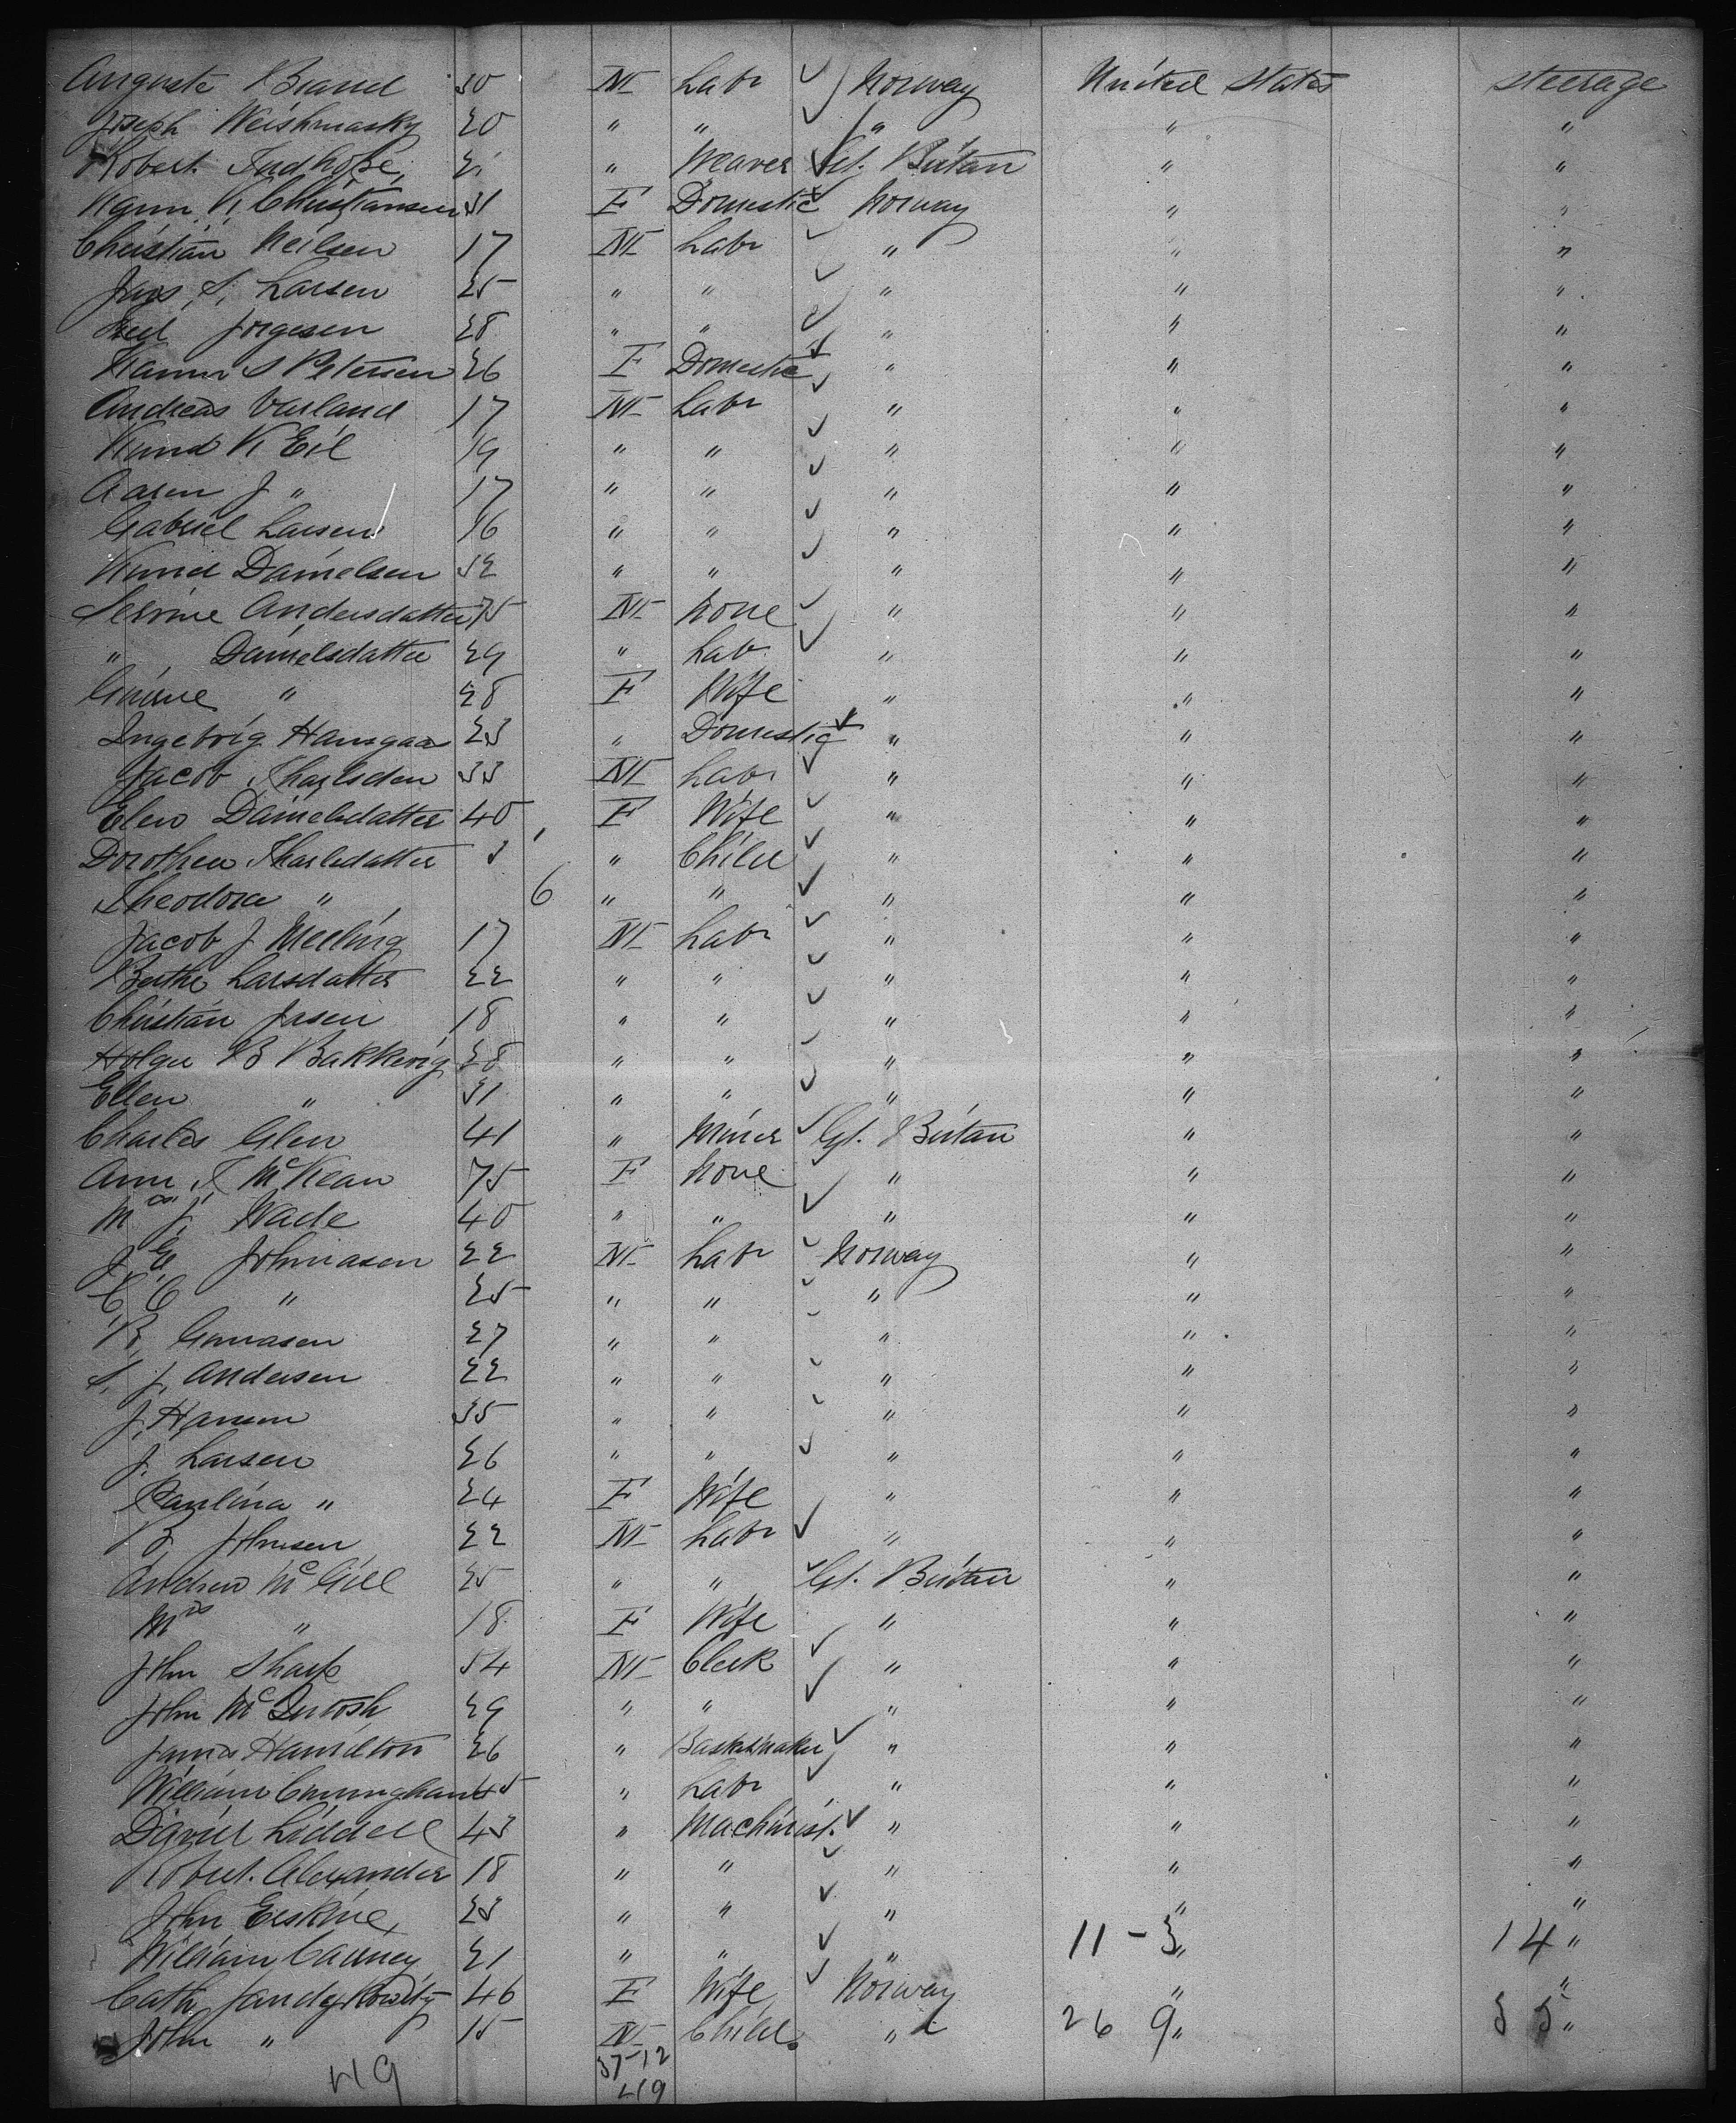 Auguste Brand 30 M Labr Norway United States Steerage
Joseph Weishmasky 20 " " " " "
Robert Indhope 21 " Weaver Gt. Britan " "
Karin K Christiansen 31 F Domestic Norway " "
Christian Neilsen 17 M Labr " " "
Jans S. Larsen 25 " " " " "
Jorgesen 28 " " " " "
Hanna S Petersen 26 F Domestic " " "
Andreas Varland 17 M Labr " " "
Knud K Eil 19 " " " " "
Aasen J " 17 " " " " "
Gabriel Larsen 16 " " " " "
Knud Danielsen 52 " " " " "
Serine Andersdatter 75 M None " " "
" Danielsdatter 29 " Lab " " "
" 28 F Wife " " "
Ingebrig Hansgaa 23 " Domestic " " "
Jacob Tharlsden 33 M Labr " " "
Elen Danielsdatter 40 F Wife " " "
Dorothea Tharlsdatter 3 " Child " " "
Theodora " 6 " " " " "
Jacob J Meeling 17 M Labr " " "
Berthe Larsdatter 22 " " " " "
Christian Jasen 18 " " " " "
Holger B Bakkevig 28 " " " " "
Ellen " 31 " " " " "
Charles Glen 41 " Miner Gt. Britan " "
Ann T McKean 75 F None " " "
Mrs J. Wade 40 " " " " "
J. E. Johnasen 22 M Labr Norway " "
C. C. " 25 " " " " "
B. Gunasen 27 " " " " "
S. J. Andersen 22 " " " " "
J. Hansen 35 " " " " "
J. Larsen 26 " " " " "
Paulina " 24 F Wife " " "
B Johnsen 22 M Labr " " "
Andrew McGill 25 " " Gt. Britan " "
Mrs " 18 F Wife " " "
John Sharp 54 M Clerk " " "
John McIntosh 29 " " " " "
James Hamilton 26 " Basketmaker " " "
William Cunningham 45 " Labr " " "
David Liddell 43 " Machinist. " " "
Robert. Alexander 18 " " " " "
John Erskine 23 " " " " "
William Cauney 21 " " " 11 - 3 " 14 "
Cath 46 F Wife Norway " "
John " 15 M Child " 26 9 " 35 "
49 37-12
49